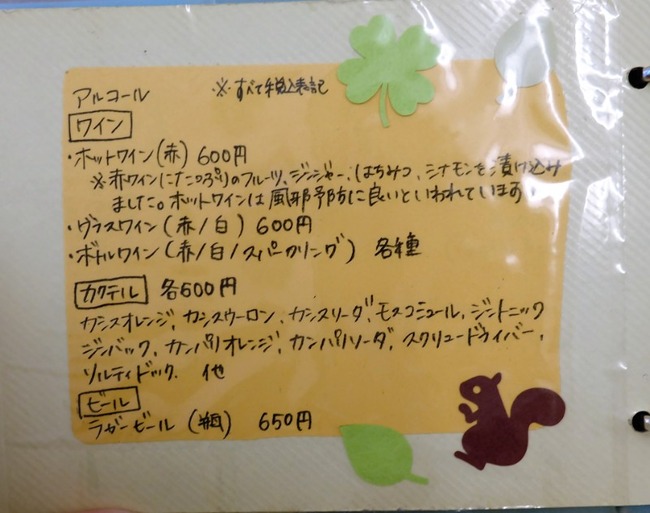 アルコール ※すべて税込表記
ワイン
・ホットワイン(赤) 600円
※赤ワインにたっぷりのフルーツ、ジンジャー、はちみつ、シナモンを漬け込み
ました。ホットワインは風邪予防に良いといわれています!
・グラスワイン(赤/白) 600円
・ボトルワイン(赤/白/スパークリング) 各種
カクテル 各600円
カシスオレンジ、カシスウーロン、カシスソーダ、モスコミュール、ジントニック
ジンバック、カンパリオレンジ、カンパリソーダ、スクリュードライバー、
ソルティドック、他
ビール
ラガービール (瓶) 650円